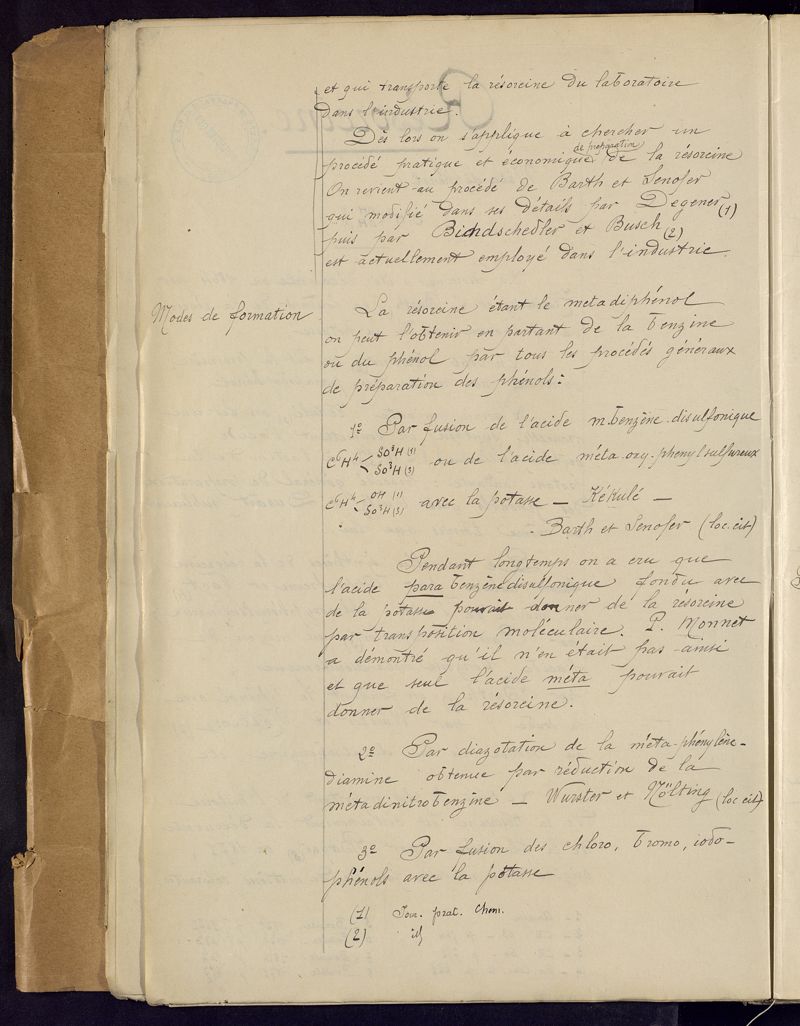 et qui transporte la résorcine du laboratoire
dans l'industrie.
Dès lors on s'applique à chercher un
de préparation
procédé pratique et économique de la résorcine
On revient au procédé de Barth et Senofer
qui modifié dans ses détails par Degener (1)
puis par Bindschedler et Busch (2)
est actuellement employé dans l'industrie.
Modes de formation
La résorcine étant le metadiphénol
on peut l'obtenir en partant de la benzine
ou du phénol par tous les procédés généraux
de préparation des phénols :
1º Par fusion de l'acide m.benzène.disulfonique
C⁶H⁴ SO³H (1) SO³H (3) ou de l'acide méta.oxy-phenylsulfureux
C⁶H⁴ OH (1) SO³H (3) avec la potasse — Kékulé —
- Barth et Senofer (loc.cit)
Pendant longtemps on a cru que
l'acide para benzènedisulfonique fondu avec
de la potasse pouvait donner de la résorcine
par transposition moléculaire. P. Monnet
a démontré qu'il n'en était pas ainsi
et que seul l'acide méta pouvait
donner de la résorcine.
2º Par diazotation de la méta-phénylène-
diamine obtenue par réduction de la
métadinitrobenzine — Wurster et Nölting (loc cit)
3º Par fusion des chloro, bromo, iodo-
phénols avec la potasse
(1) Jou. prat. Chem.
(2) id